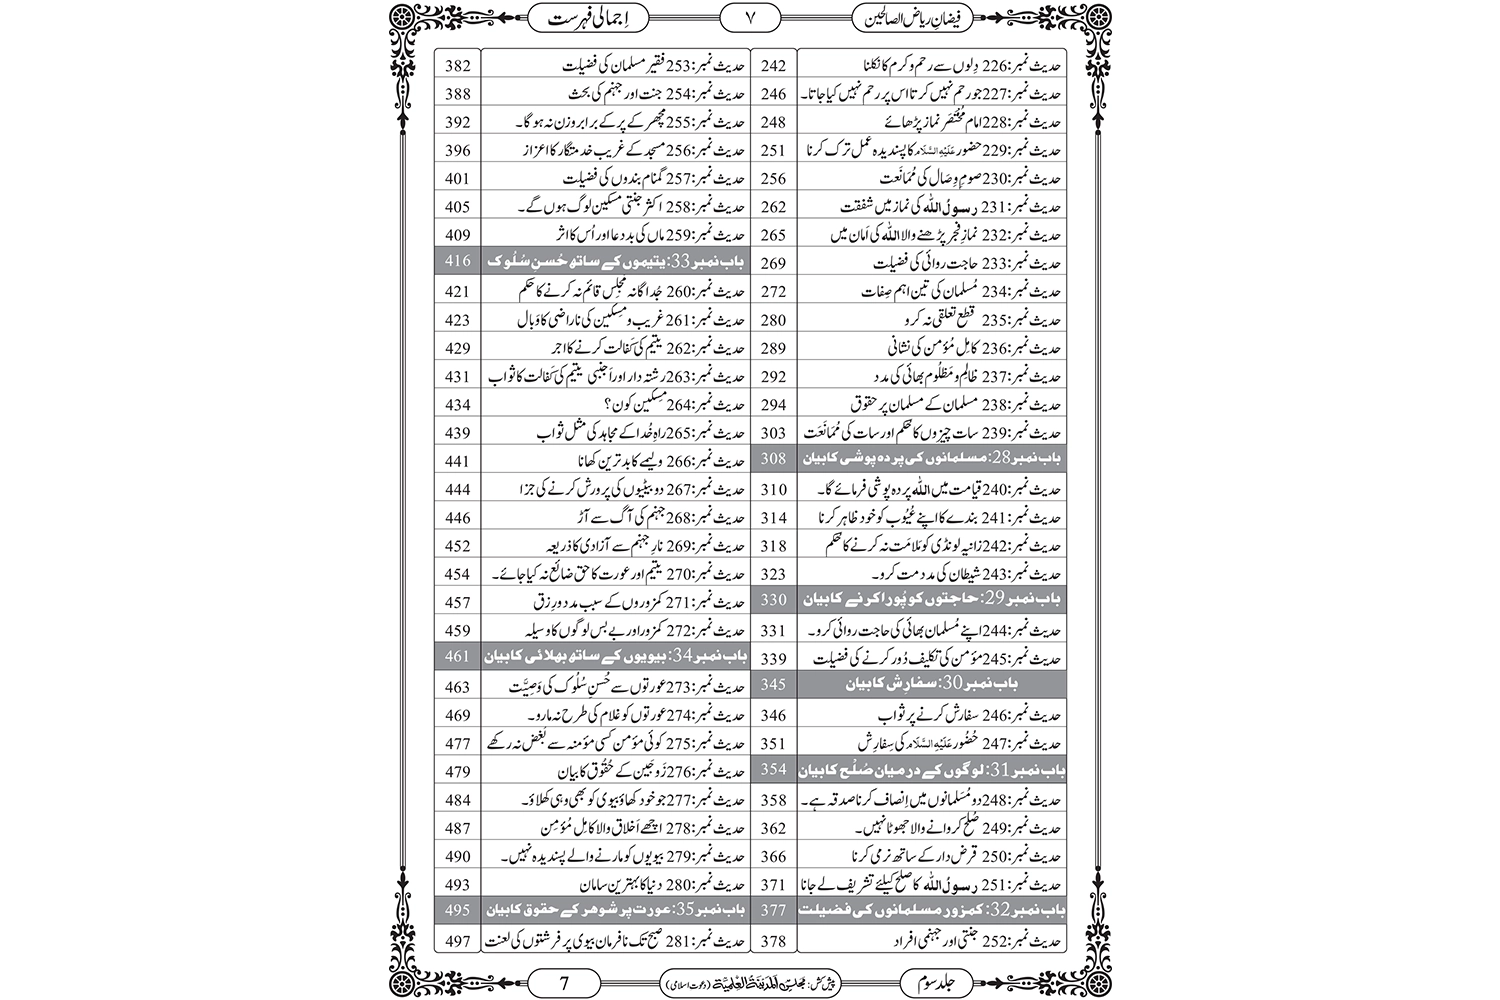 فیضانِ ریاض الصالحین
۷
اِجمالی فہرست
حدیث نمبر:226 دِلوں سے رحم و کرم کا نکلنا 242
حدیث نمبر:227 جو رحم نہیں کرتا اس پر رحم نہیں کیا جاتا۔ 246
حدیث نمبر:228 امام مُخْتَصَر نماز پڑھائے 248
حدیث نمبر:229 حضور عَلَیْہِ السَّلَام کا پسندیدہ عمل ترک کرنا 251
حدیث نمبر:230 صومِ وِصَال کی مُمَانَعَت 256
حدیث نمبر:231 رسولُ اللہ کی نماز میں شفقت 262
حدیث نمبر:232 نمازِ فجر پڑھنے والا اللہ کی اَمان میں 265
حدیث نمبر:233 حاجت روائی کی فضیلت 269
حدیث نمبر:234 مُسلمان کی تین اہم صِفات 272
حدیث نمبر:235 قطع تعلقی نہ کرو 280
حدیث نمبر:236 کامِل مُؤمن کی نشانی 289
حدیث نمبر:237 ظالِم و مَظلُوم بھائی کی مدد 292
حدیث نمبر:238 مسلمان کے مسلمان پر حقوق 294
حدیث نمبر:239 سات چیزوں کا حُکم اور سات کی مُمَانَعَت 303
باب نمبر 28:مسلمانوں کی پردہ پوشی کا بیان 308
حدیث نمبر:240 قیامت میں اللہ پردہ پوشی فرمائے گا۔ 310
حدیث نمبر:241 بندے کا اپنے عُیُوب کو خود ظاہر کرنا 314
حدیث نمبر:242 زانیہ لونڈی کو مَلامَت نہ کرنے کا حُکم 318
حدیث نمبر:243 شیطان کی مدد مت کرو۔ 323
باب نمبر 29:حاجتوں کو پُورا کرنے کا بیان 330
حدیث نمبر:244 اپنے مُسلمان بھائی کی حاجت روائی کرو۔ 331
حدیث نمبر:245 مؤمن کی تکلیف دُور کرنے کی فضیلت 339
باب نمبر 30:سفارِش کا بیان 345
حدیث نمبر:246 سفارش کرنے پر ثواب 346
حدیث نمبر:247 حُضُور عَلَیْہِ السَّلَام کی سِفارِش 351
باب نمبر 31:لوگوں کے درمیان صُلْح کا بیان 354
حدیث نمبر:248 دو مُسلمانوں میں اِنصاف کرنا صدقہ ہے۔ 358
حدیث نمبر:249 صُلح کروانے والا جھوٹا نہیں۔ 362
حدیث نمبر:250 قرض دار کے ساتھ نرمی کرنا 366
حدیث نمبر:251 رسولُ اللہ کا صلح کیلئے تشریف لے جانا 371
باب نمبر 32:کمزور مسلمانوں کی فضیلت 377
حدیث نمبر:252 جنتی اور جہنمی افراد 378
حدیث نمبر:253 فقیر مسلمان کی فضیلت 382
حدیث نمبر:254 جنت اور جہنم کی بحث 388
حدیث نمبر:255 مچھر کے پر کے برابر وزن نہ ہوگا۔ 392
حدیث نمبر:256 مسجد کے غریب خدمتگار کا اعزاز 396
حدیث نمبر:257 گمنام بندوں کی فضیلت 401
حدیث نمبر:258 اکثر جنتی مسکین لوگ ہوں گے۔ 405
حدیث نمبر:259 ماں کی بددعا اور اُس کا اثر 409
باب نمبر 33:یتیموں کے ساتھ حُسنِ سُلُوک 416
حدیث نمبر:260 جُداگانہ مجلِس قائم نہ کرنے کا حکم 421
حدیث نمبر:261 غریب و مِسکین کی ناراضی کا وَبال 423
حدیث نمبر:262 یتیم کی کَفالت کرنے کا اجر 429
حدیث نمبر:263 رشتہ دار اور اَجنبی یتیم کی کَفالت کا ثواب 431
حدیث نمبر:264 مِسکین کون؟ 434
حدیث نمبر:265 راہِ خُدا کے مجاہد کی مثل ثواب 439
حدیث نمبر:266 ولیمے کا بدترین کھانا 441
حدیث نمبر:267 دو بیٹیوں کی پرورش کرنے کی جزا 444
حدیث نمبر:268 جہنم کی آگ سے آڑ 446
حدیث نمبر:269 نارِ جہنم سے آزادی کا ذریعہ 452
حدیث نمبر:270 یتیم اور عورت کا حق ضائع نہ کیا جائے۔ 454
حدیث نمبر:271 کمزوروں کے سبب مدد و رِزق 457
حدیث نمبر:272 کمزور اور بے بس لوگوں کا وسیلہ 459
باب نمبر 34:بیویوں کے ساتھ بھلائی کا بیان 461
حدیث نمبر:273 عورتوں سے حُسنِ سُلُوک کی وَصِیَّت 463
حدیث نمبر:274 عورتوں کو غلام کی طرح نہ مارو۔ 469
حدیث نمبر:275 کوئی مؤمن کسی مؤمنہ سے بُغض نہ رکھے 477
حدیث نمبر:276 زَوجَین کے حُقُوق کا بیان 479
حدیث نمبر:277 جو خود کھاؤ بیوی کو بھی وہی کھلاؤ۔ 484
حدیث نمبر:278 اچھے اَخلاق والا کامِل مُؤمِن 487
حدیث نمبر:279 بیویوں کو مارنے والے پسندیدہ نہیں۔ 490
حدیث نمبر:280 دنیا کا بہترین سامان 493
باب نمبر 35:عورت پر شوہر کے حقوق کا بیان 495
حدیث نمبر:281 صبح تک نافرمان بیوی پر فرشتوں کی لعنت 497
جلد سوم
پیش کش: مجلس المدینۃ العلمیۃ (دعوتِ اسلامی)
7